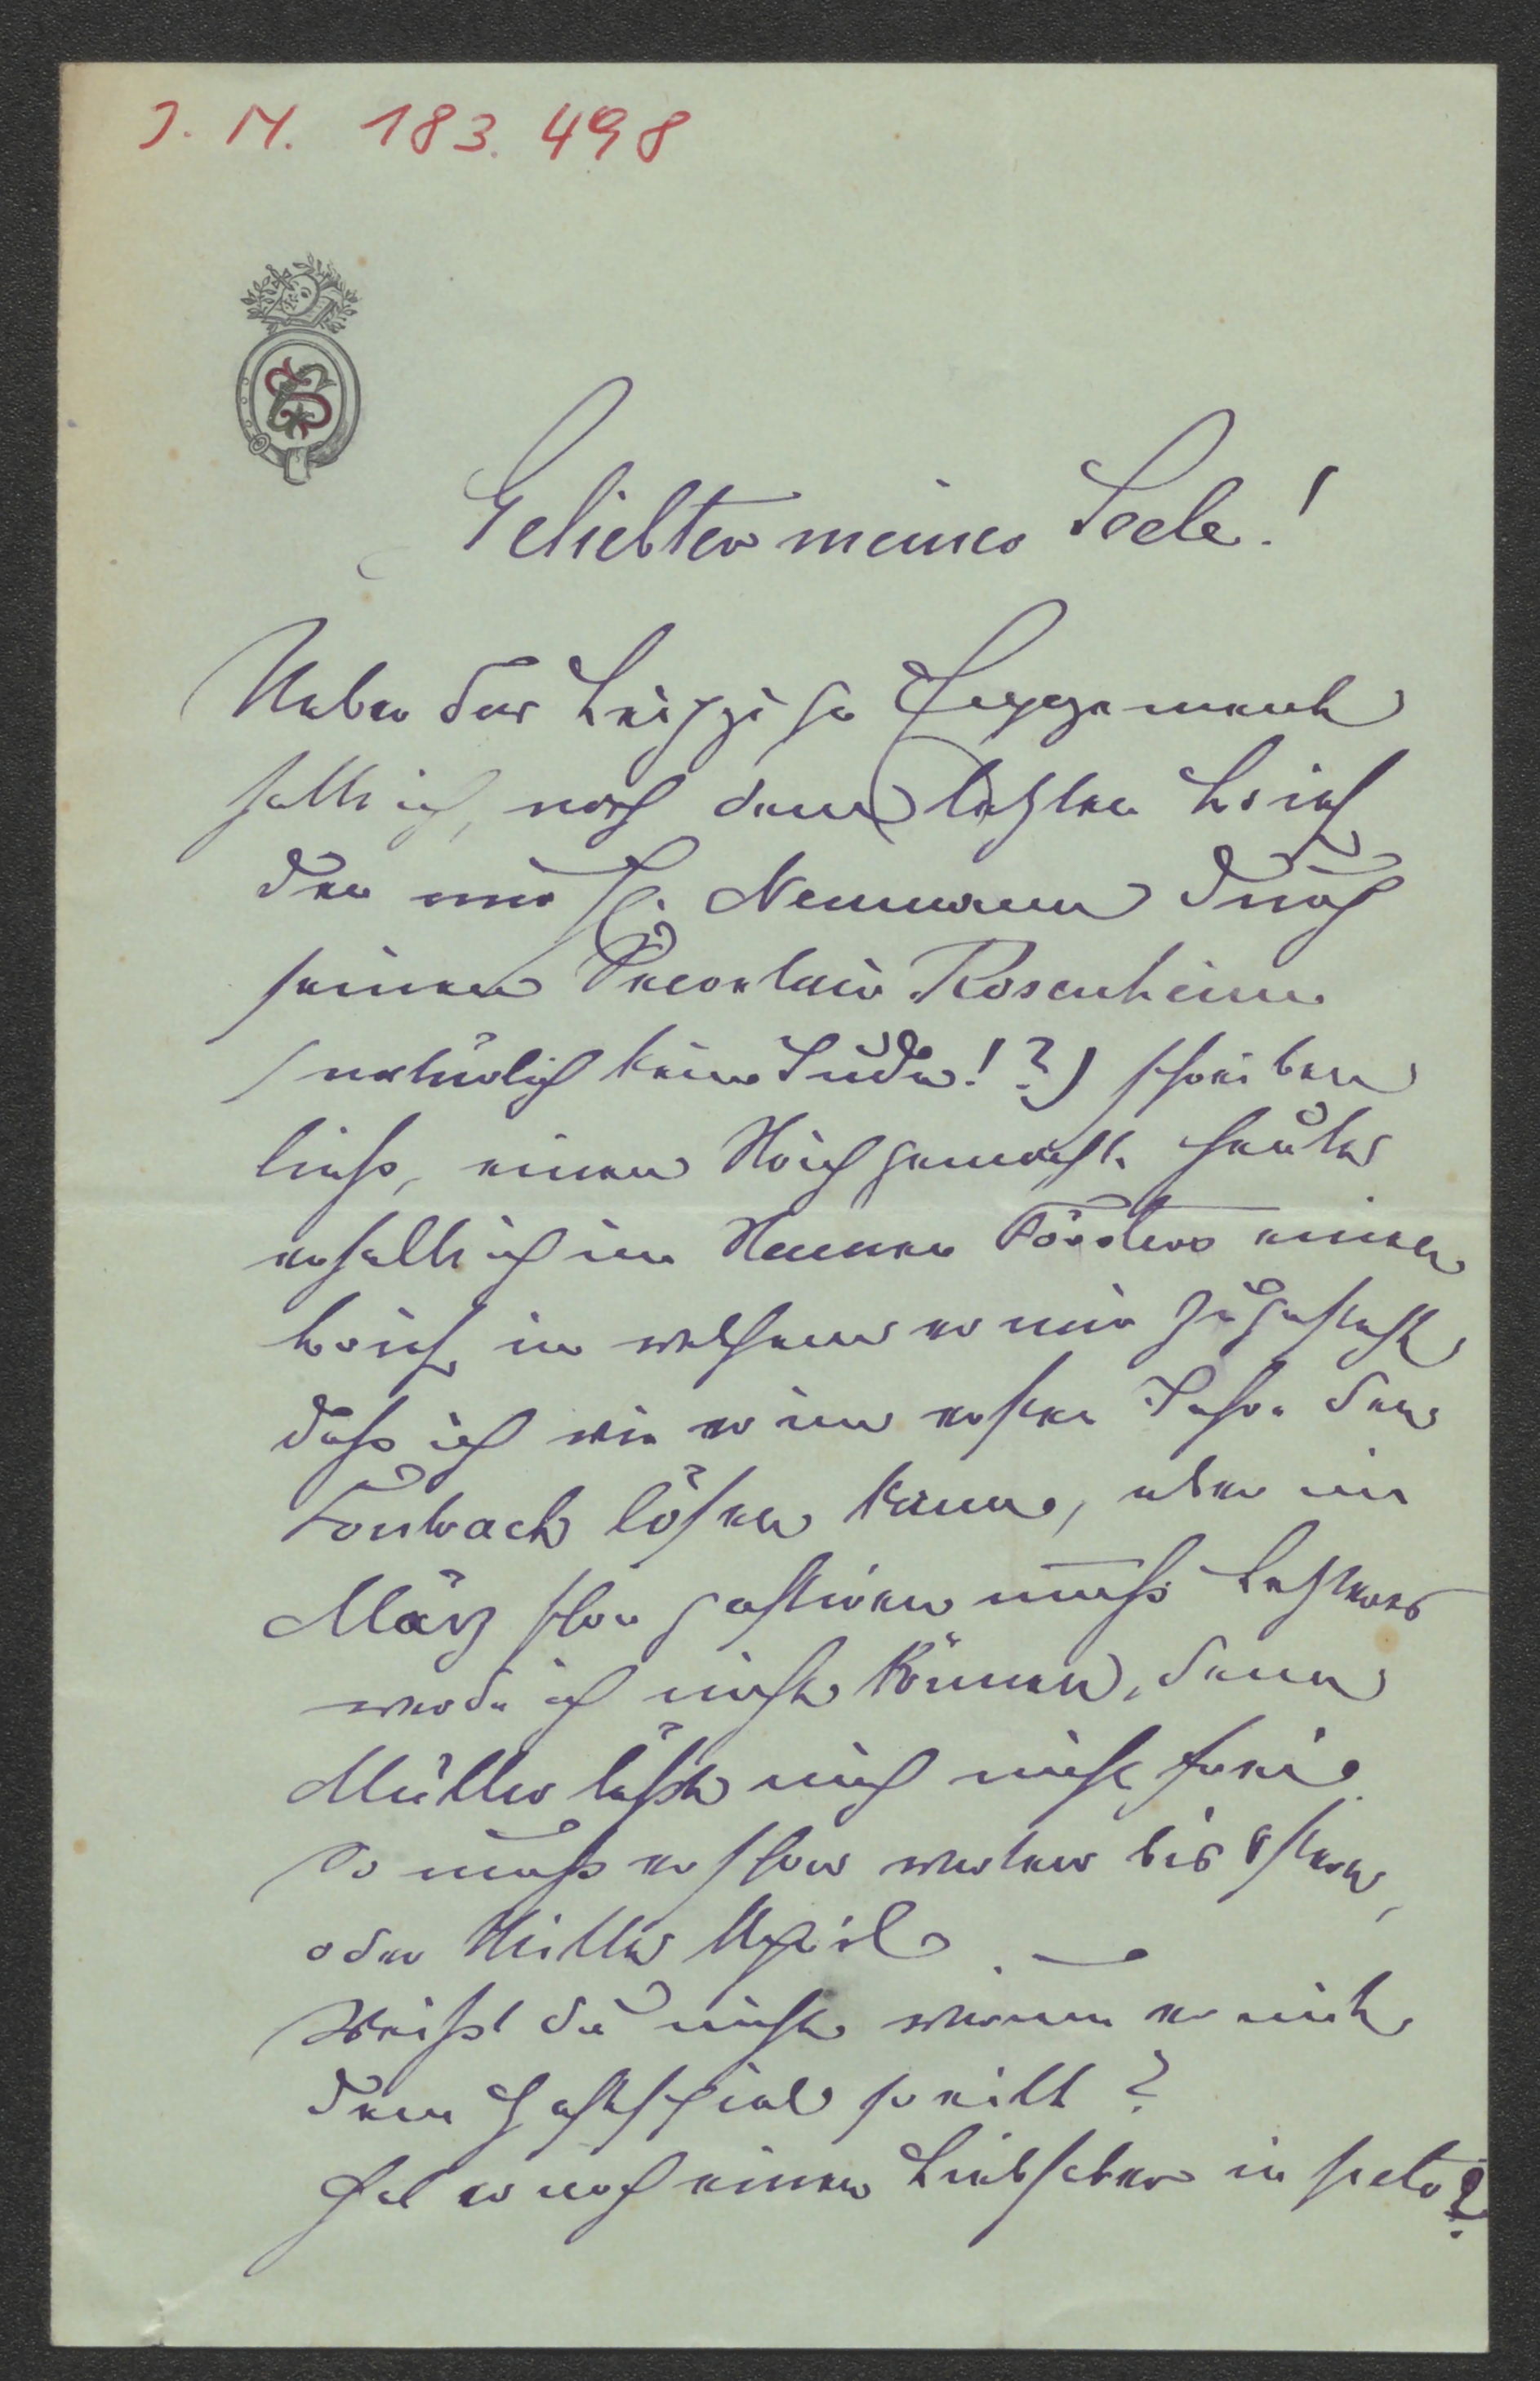 J. N. 183.498
Geliebter meiner Seele!
Ueber das Leipziger Engagement
hatte ich, nach dem letzten Brief
den mir H. Neumann durch
seinen Secretair Rosenheim
(natürlich kein Jude!?) schreiben
ließ, einen Strich gemacht. Heute
erhalte ich im Namen Försters einen
Brief, in welchem er mir zugesteht
daß ich wie er im ersten Jahre den
Contract lösen kann, aber im
März schon gastiren muß. Letzteres
werde ich nicht können, denn
Müller läßt mich nicht frei.
So muß er schon warten bis Ostern,
oder Mitte April. —
Weißt du nicht warum er mit
dem Gastspiel so eilt?
Hat er noch einen Liebhaber in petto?